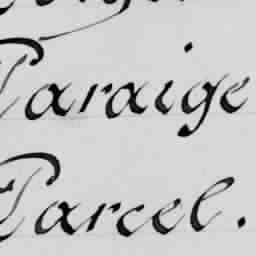 Paraige
Parcel.